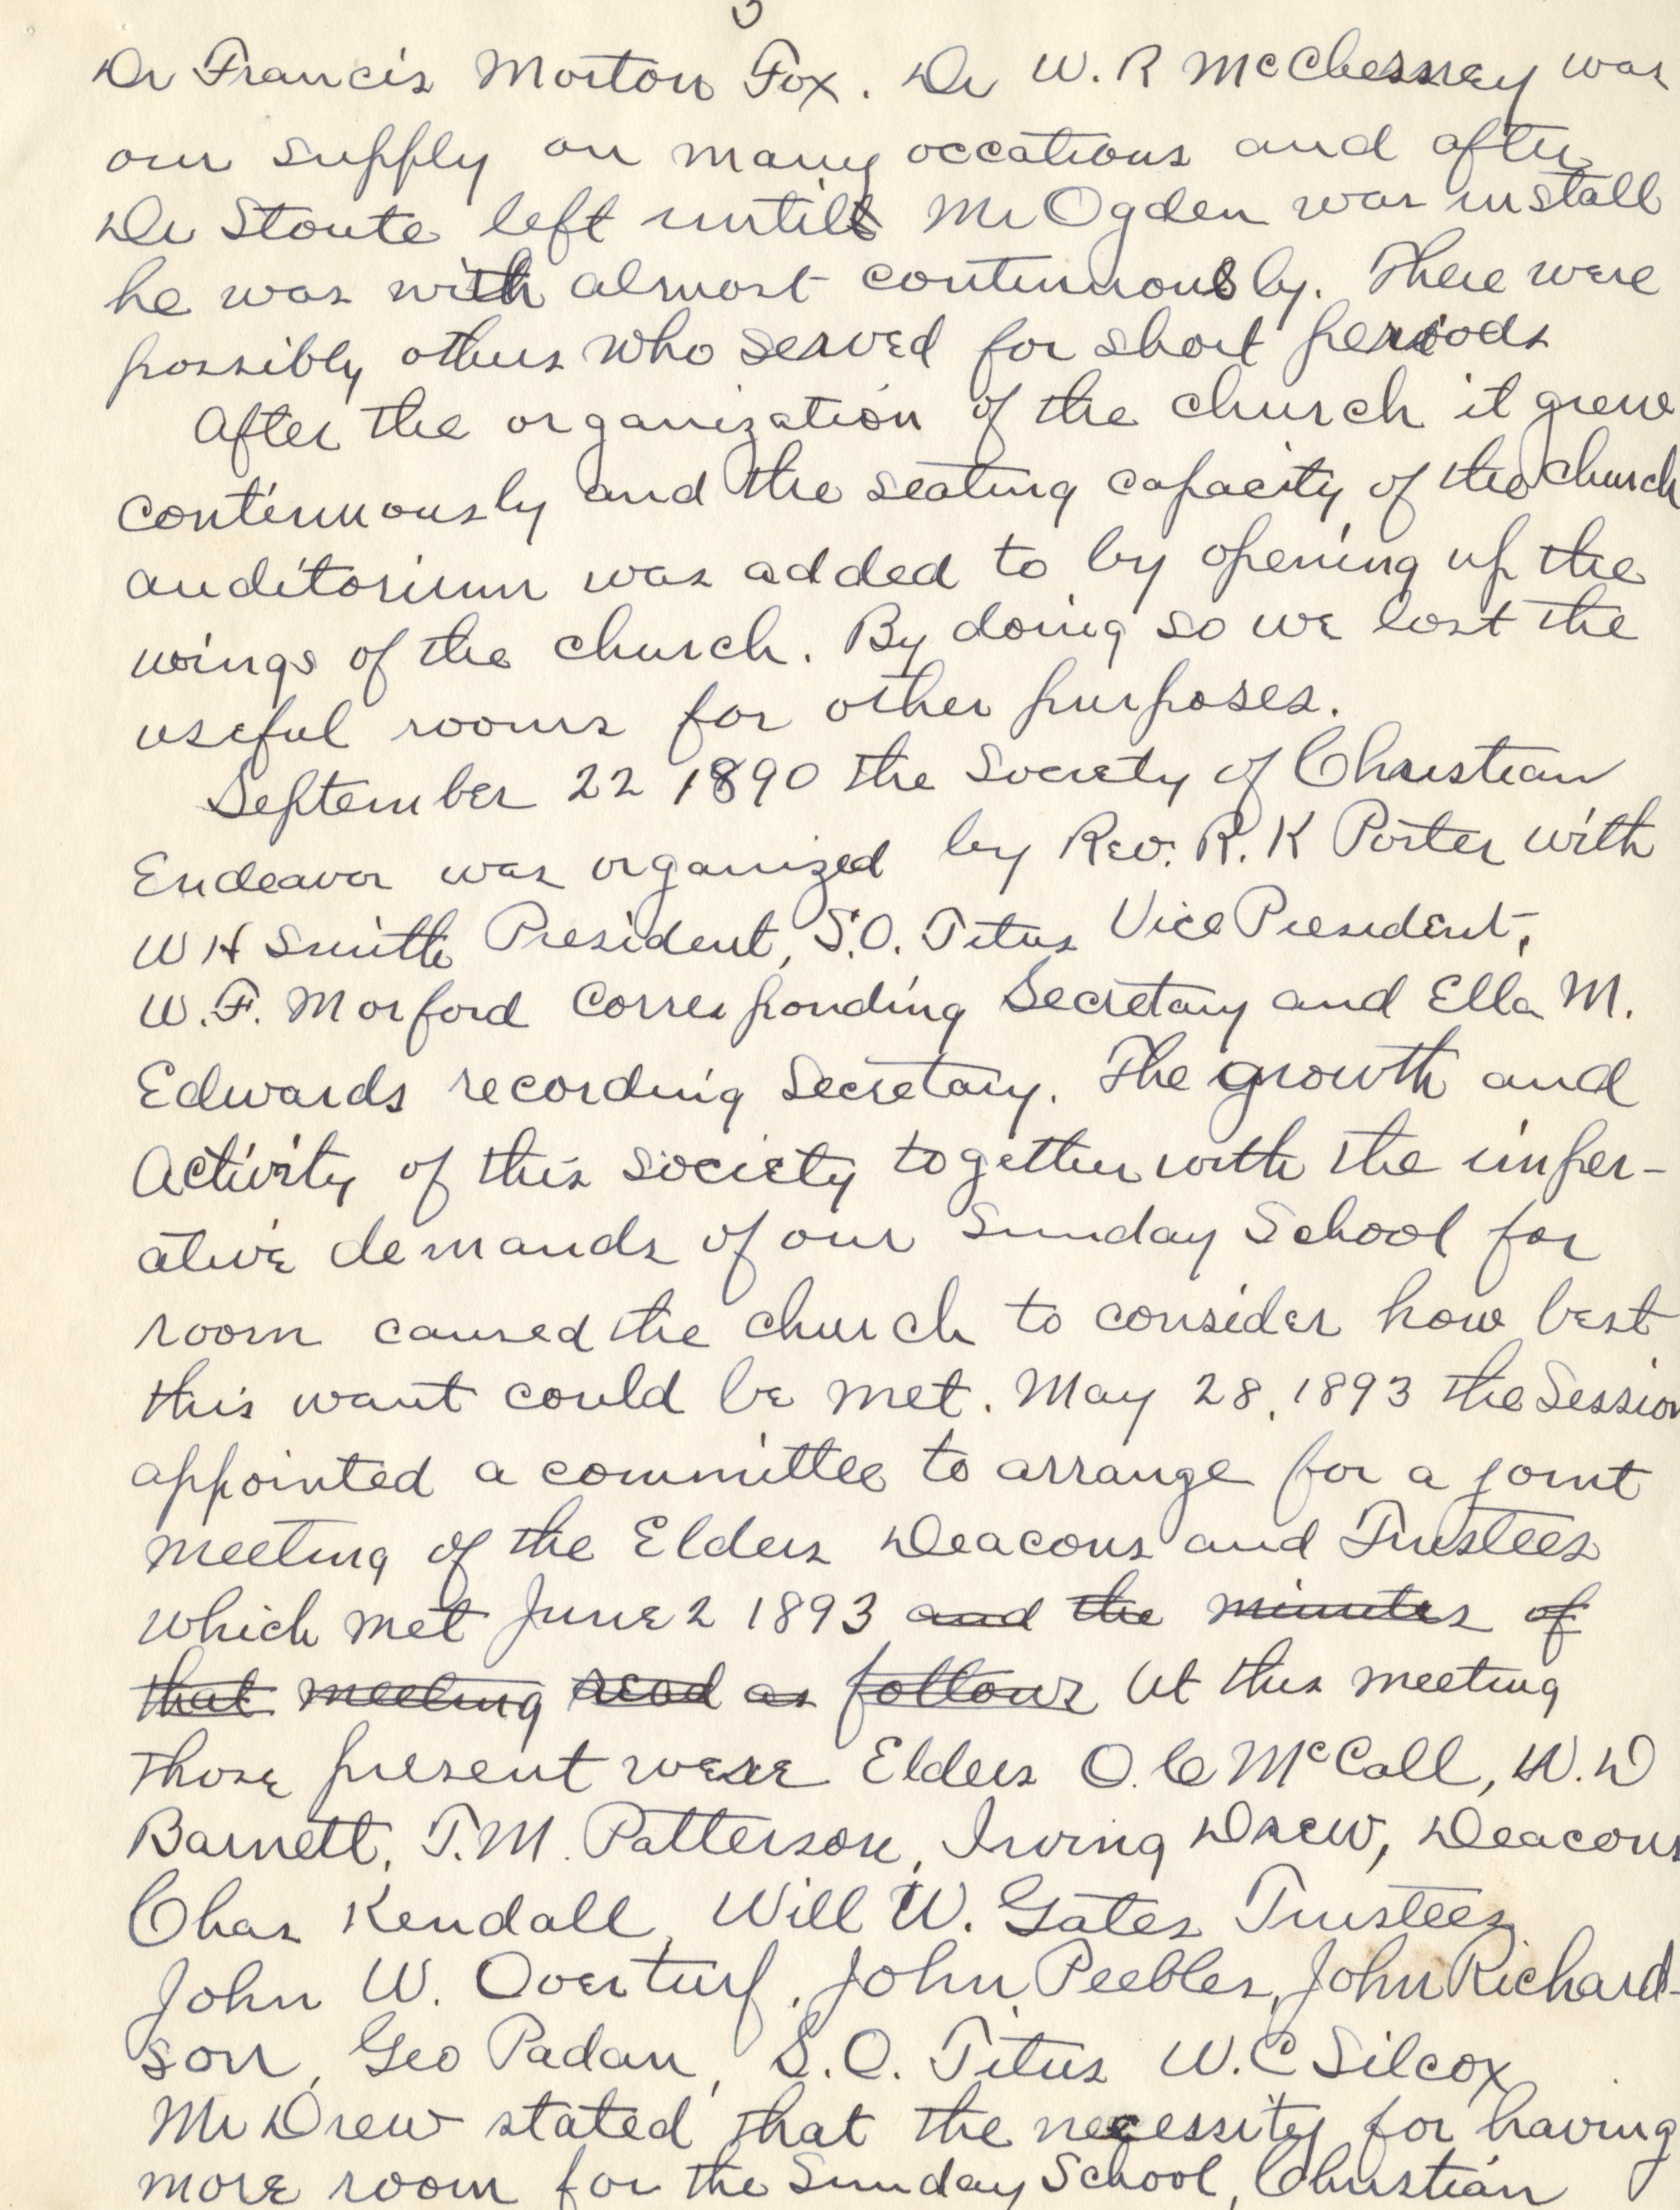 Dr Francis Morton Fox. Dr W. R McChesney was
our supply on many occations and after
Dr Stoute left until Mr Ogden was install
he was with almost continuously. There were
possibly others who served for short periods
After the organization of the church it grew
continuously and the seating capacity of the church
auditorium was added to by opening up the
wings of the church. By doing so we lost the
useful rooms for other purposes.
September 22 1890 the Society of Christian
Endeavor was organized by Rev. R. K Porter with
W H Smith President, S.O. Titus Vice President,
W. F. Morford Corresponding Secretary and Ella M.
Edwards recording Secretary. The growth and
Activity of this society together with the imper-
ative demands of our Sunday School for
room caused the church to consider how best
this want could be met. May 28, 1893 the Session
appointed a committee to arrange for a joint
meeting of the Elders Deacons and Trustees
which met June 2 1893 and the minutes of
that meeting read as follows At this meeting
those present were Elders O. C McCall, W. D
Barnett, T. M. Patterson, Irving Drew, Deacons
Chas Kendall, Will W. Gates Trustees
John W. Overturf, John Peebles, John Richard-
son, Geo Padan, S. O. Titus W. C Silcox
Mr Drew stated that the necessity for having
more room for the Sunday School, Christian